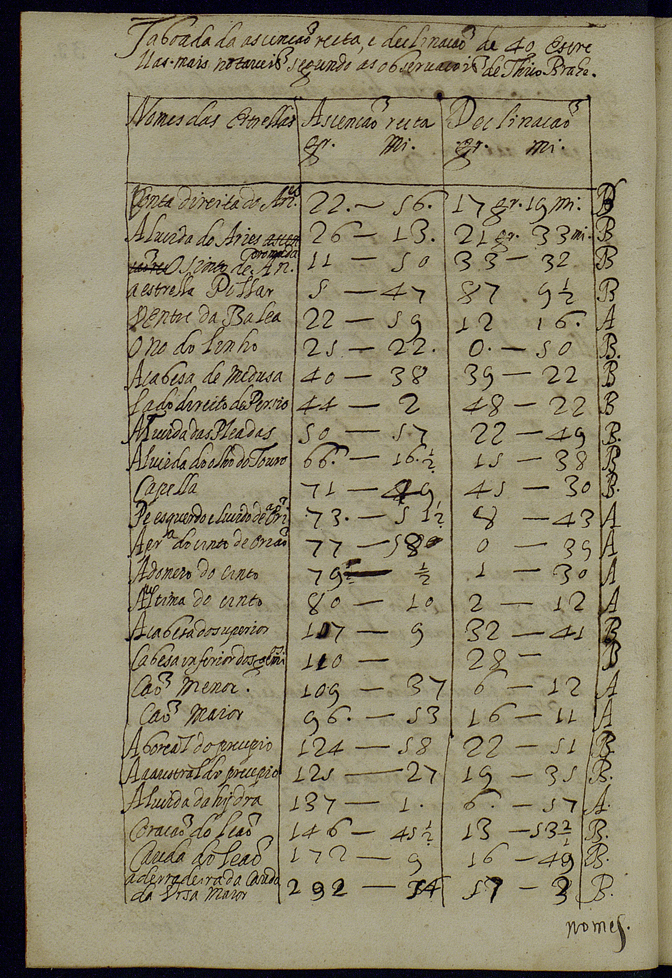 Taboada da ascencaõ recta, e declinacaõ de 40 Estre
llas mais notaueis segundo as obseruacois de Thico Brahe.
Nomes das Estrellas Ascencaõ recta Declinacaõ
gr. mi. gr. mi.
Ponta direita do Ari.es 22. — 56. 17 gr. 19 mi. B
A Lucida do Aries 26 — 13. 21 gr. 33 mi. B
de An. 11 — 50 33 — 32 B
a estrella Pollar 5 — 47 87 9½ B
Ventre da Balea 22 — 59 12 16. A
O no do linho 25 — 22. 0. — 50 B.
A cabesa de Medusa 40 — 38 39 — 22 B
Lado direito de Persio 44 — 2 48 — 22 B
A Lucida das Pleadas 50 — 57 22 — 49 B.
A Lucida do olho do Touro 66. — 16.½ 15 — 38 B
Capella 71 — 49 45 — 30 B.
Pe esquerdo e lucido de Ori.aõ 73. — 51½ 8 — 43 A
A pr.ra do cinto de Oriaõ 77 — 58 0 — 39 A
A do meo do cinto 79 — ½ 1 — 30 A
A ultima do cinto 80 — 10 2 — 12 A
A cabesa do superior 107 — 9 32 — 41 B
Cabesa inferior dos gemi.s 110 — 28 — B
Caõ Menor. 109 — 37 6 — 12 A
Caõ Maior 96. — 53 16 — 11 A
A boreal do presepio 124 — 58 22 — 51 B
A austral do presepio 125 — 27 19 — 35 B.
A Lucida da hidra 137 — 1. 6. — 57 A.
Coracaõ do leaõ 146 — 45½ 13 — 53½ B.
Cauda do leaõ 172 — 9 16 — 49 B.
a derradeira da Cauda
da Ursa Maior 292 — 34 57 — 3 B.
nomes.